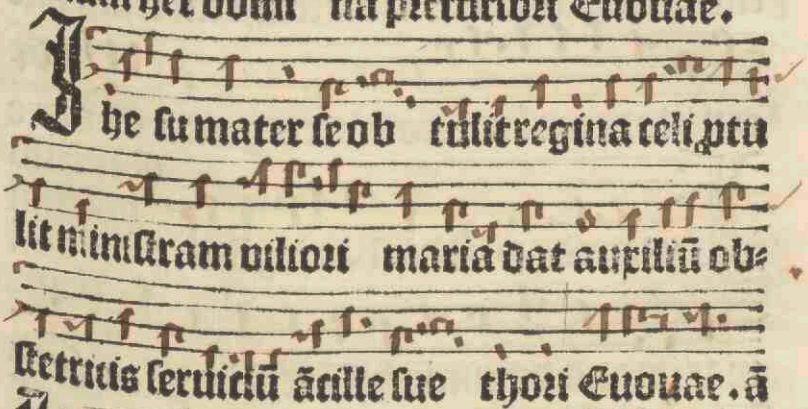 Ihe su mater se ob tulit regina celi ꝓtu
lit ministram viliori maria dat auxiliū ob⸗
stetricis seruiciū ācille sue thori Euouae. ā